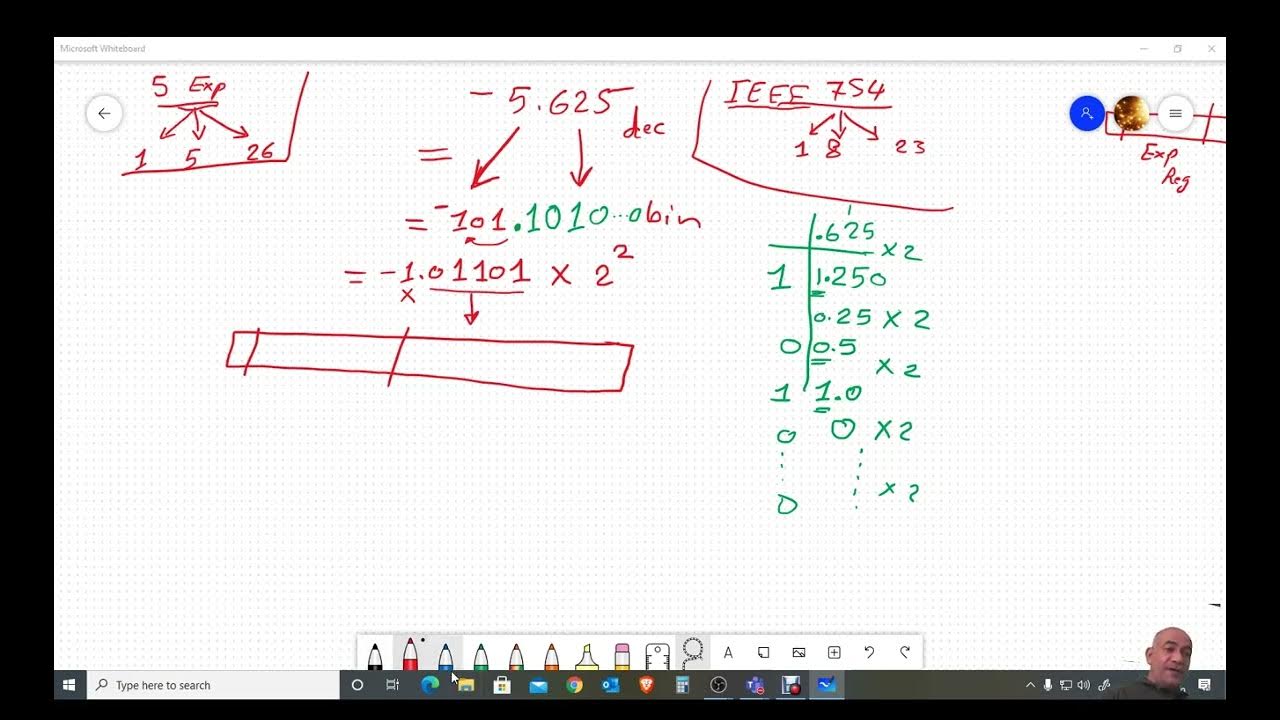 Microsoft Whiteboard
5 Exp
1 5 26
- 5.625 dec
=
= -101.1010...0bin
= -1.01101 x 2²
x
IEEE 754
1 8 23
Exp
Reg
.625
x 2
1 1.250
0.25 x 2
0 0.5
x 2
1 1.0
0 0 x2
0 x 2
A
Type here to search